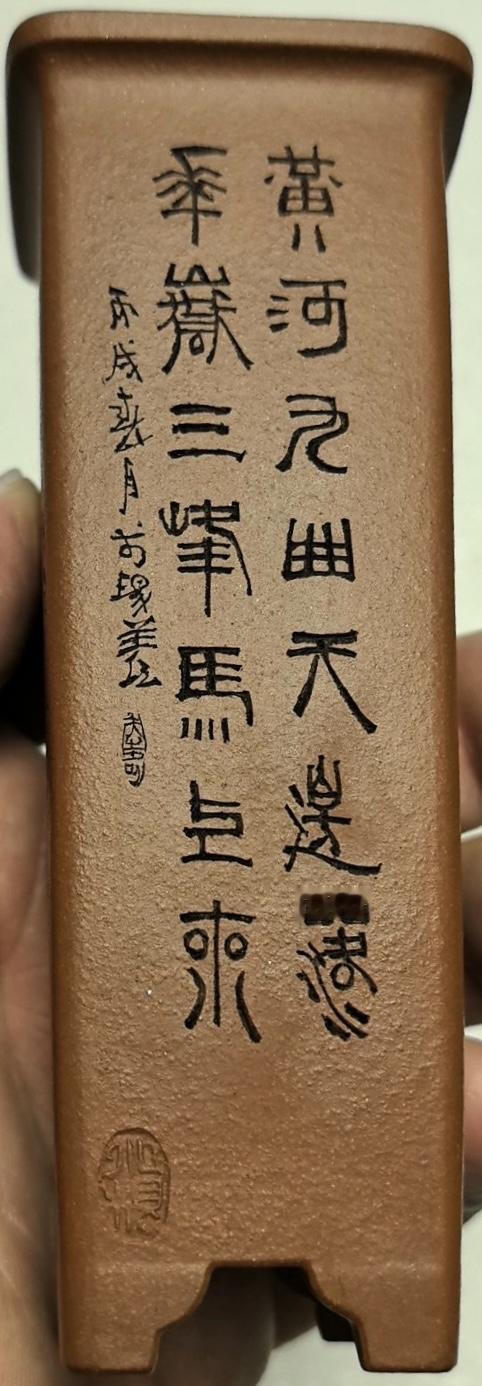 黃河九曲天邊
華嶽三峰馬上來
丙戌春月於陽羨